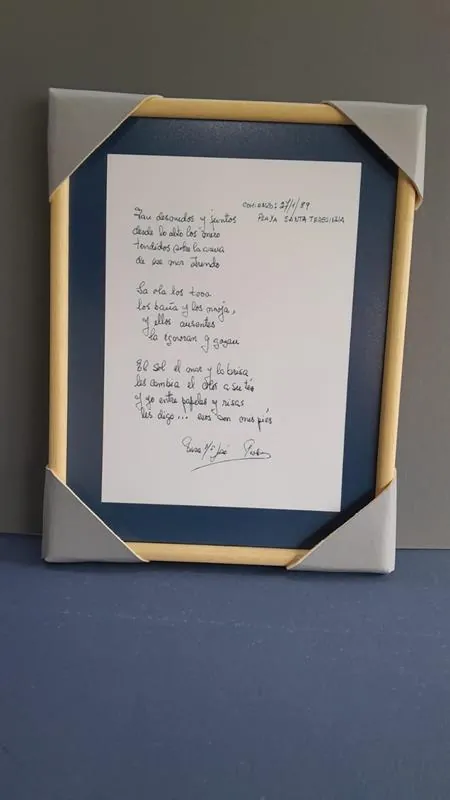 COMIENZO: 27/1/89
PLAYA SANTA TERESINHA
Tan desnudos y juntos
desde lo alto los miro
tendidos sobre la arena
de ese mar
La ola los toca
los baña y los moja,
y ellos ausentes
la ignoran y gozan
El sol el mar y la brisa
les cambia el color a su
y yo entre papeles y risas
les digo... esos son mis piés
Mª José